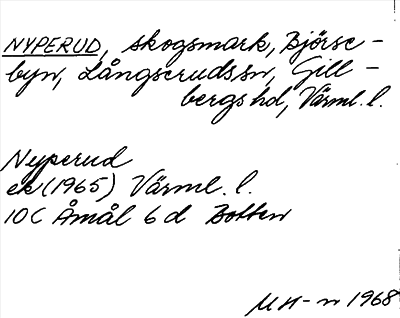 NYPERUD, skogsmark, Björse-
byn, Långseruds sn, Gill-
bergs hd, Värml. l.
Nyperud
ek (1965) Värml. l.
10C Åmål 6d Botten
MH-n 1968